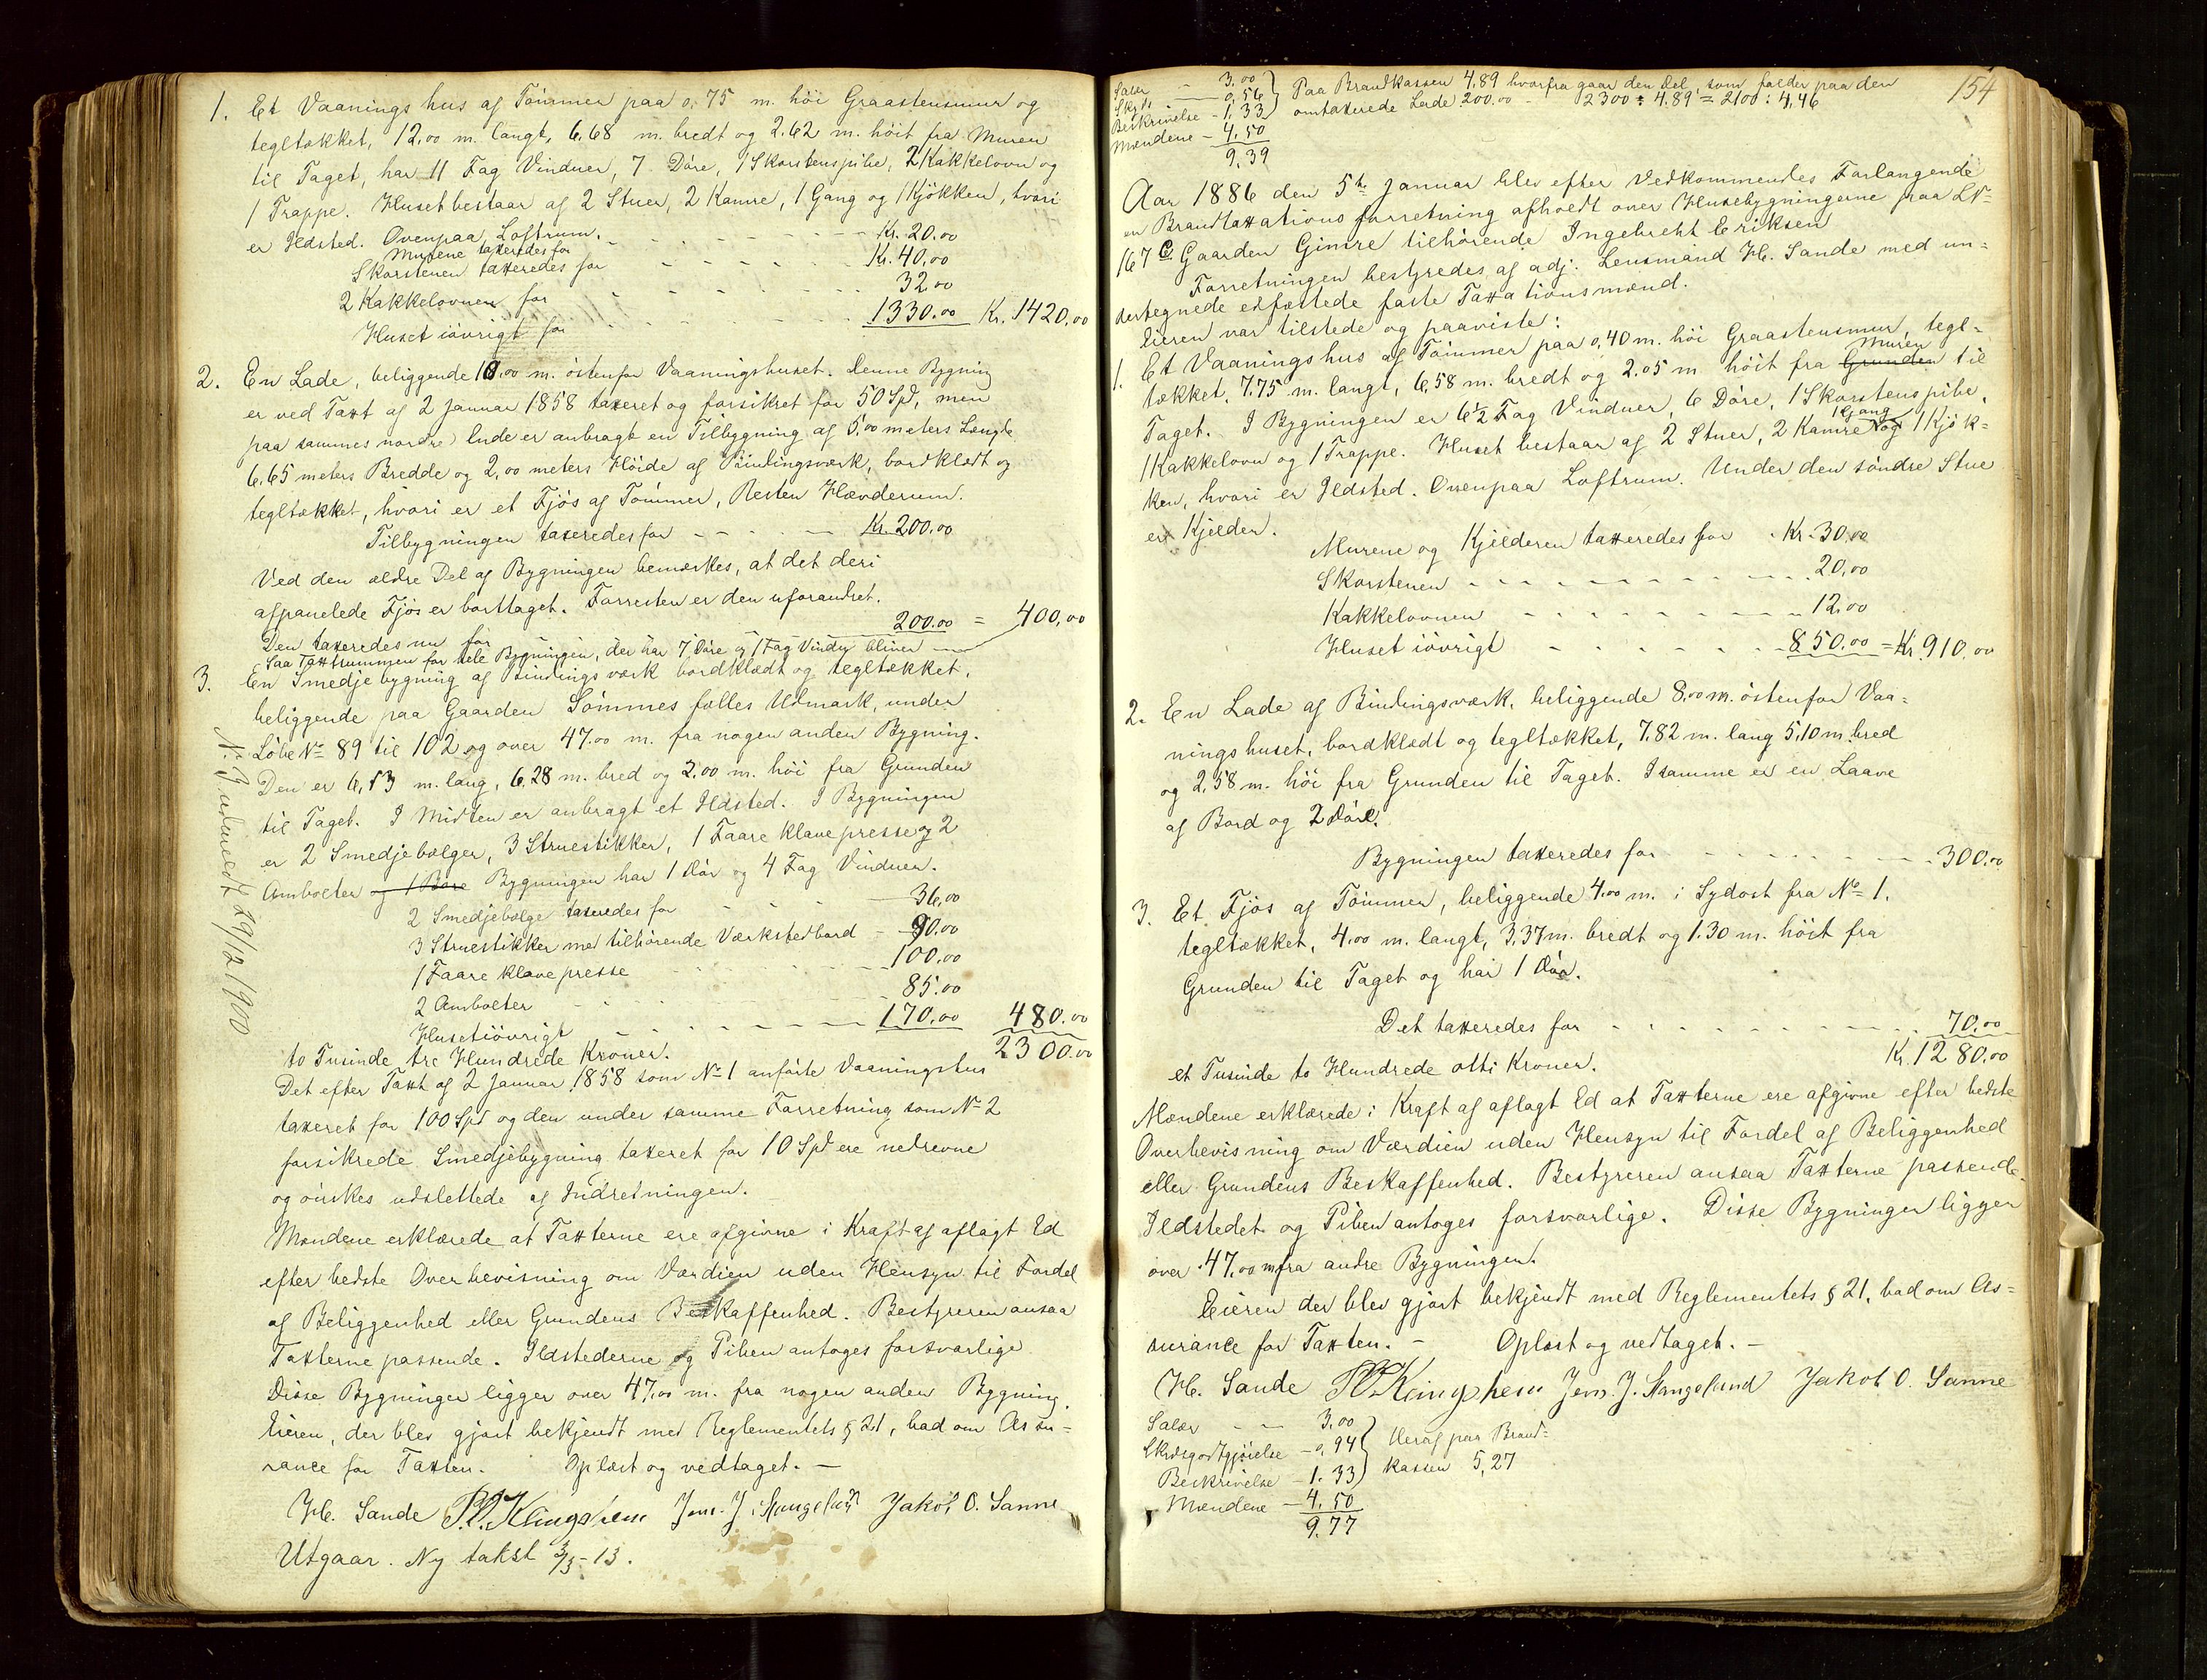 1. Et Vaaningshus af Tömmer paa 0,75 m. höi Graastensmur og
tegltækket, 12,00 m. langt, 6.68 m. bredt og 2.62 m. höit fra Muren
til Taget, har 11 Fag Vinduer, 7 Döre, 1 Skorstenspibe, 2 Kakkelovn og
1 Trappe. Huset bestaar af 2 Stuer, 2 Kamre, 1 Gang og 1 Kjökken, hvori
er Ildsted. Ovenpaa Loftrum.
Murene taxeredes for Kr. 20.00
Skorstenen taxeredes for Kr. 40,00
2 Kakkelovnen for 32.00
Huset iövrigt for 1330.00 Kr. 1420,00
2. En Lade, beliggende 10,00 m. östenfor Vaaningshuset. Denne Bygning
er ved Taxt af 2 Januar 1858 taxeret og forsikret for 50 Spd, men
paa sammes nordre Ende er anbragt en Tilbygning af 5,00 meters Længde
6,65 meters Bredde og 2,00 meters Höide af Bindingsværk, bordklædt og
tegltækket, hvori er et Fjös af Tömmer, Resten Hævderum.
Tilbygningen taxeredes for Kr. 200.00
Ved den ældre Del af Bygningen bemærkes, at det deri
afpanelede Fjös er borttaget. Forresten er den uforandret.
Den taxeredes nu for 200.00 = 400,00
Saa Taxtsummen for hele Bygningen, der har 7 Döre og 1 Fag Vindu bliver
3. En Smedjebygning af Bindingsværk bordklædt og tegltækket,
beliggende paa Gaarden Sömmes fælles Udmark, under
Löbe No 89 til 102 og over 47.00 m. fra nogen anden Bygning.
Den er 6,53 m. lang, 6,28 m. bred og 2.00 m. höi fra Grunden
til Taget. I Midten er anbragt et Ildsted. I Bygningen
er 2 Smedjebælger, 3 Struestikker, 1 Faareklavepresse og 2
Ambolter og 1 Bore Bygningen har 1 Dör og 4 Fag Vinduer.
2 Smedjebælge taxeredes for 36,00
3 Struestikker med tilhörende Værkstedbord 90.00
1 Faareklavepresse 100,00
2 Ambolter 85.00
Huset iövrigt 170,00 480.00
to Tusinde tre Hundrede Kroner. 2300.00
Det efter Taxt af 2 Januar 1858 som No 1 anförte Vaaningshus
taxeret for 100 Spd og den under samme Forretning som No 2
forsikrede Smedjebygning taxeret for 10 Spd ere nedrevne
og önskes udslettede af Indretningen.
Mændene erklærede at Taxterne ere afgivne i Kraft af aflagt Ed
efter bedste Overbevisning om Værdien uden Hensyn til Fordel
af Beliggenhed eller Grundens Beskaffenhed. Bestyreren ansaa
Taxterne passende. Ildstederne og Piben antoges forsvarlige
Disse Bygninger ligger over 47,00 m. fra nogen anden Bygning.
Eieren, der blev gjort bekjendt med Reglementets § 21, bad om Assu=
rance for Taxten. Oplæst og vedtaget. —
H. Sande Jakob O. Sanne
Utgaar. Ny takst 3/3-13.
29/12 1900
154
Salær 3,00 Paa Brandkassen 4,89 hvorfra gaar den Del, som falder paa den
0,56 omtaxerede Lade 200.00 - 2300 : 4,89 = 2100 : 4,46
Beskrivelse - 1,33
Mændene - 4,50
9,39
Aar 1886 den 5te Januar blev efter Vedkommendes Forlangende
en Brandtaxationsforretning afholdt over Husebygningerne paa LNo
167 c Gaarden Gimre tilhörende Ingebreht Eriksen
Forretningen bestyredes af adj. Lensmand H. Sande med un=
dertegnede edfæstede faste Taxationsmænd.
Eieren var tilstede og paaviste:
1. Et Vaaningshus af Tömmer paa 0,40 m. höi Graastensmur, tegl=
tækket, 7.75 m. langt, 6,58 m. bredt og 2.05 m höit fra Grunden Muren til
Taget. I Bygningen er 6½ Fag Vinduer, 6 Döre, 1 Skorstenspibe,
1 Kakkelovn og 1 Trappe. Huset bestaar af 2 Stuer, 2 Kamre 1 Gang og 1 Kjök=
ken, hvori er Ildsted. Ovenpaa Loftrum. Under den söndre Stue
er Kjelder.
Murene og Kjelderen taxeredes for Kr. 30.00
Skorstenen 20,00
Kakkelovnen 12.00
Huset iövrigt 850.00 = Kr. 910.00
2. En Lade af Bindingsværk, beliggende 8,00 m. östenfor Vaa=
ningshuset, bordklædt og tegltækket, 7,82 m. lang 5,10 m. bred
og 2,58 m. höi fra Grunden til Taget. I samme er en Laave
af Bord og 2 Döre.
Bygningen taxeredes for 300.00
3. Et Fjös af Tömmer, beliggende 4.00 m. i Sydost fra No 1.
tegltækket, 4.00 m. langt, 3,37 m. bredt og 1.30 m. höit fra
Grunden til Taget og har 1 Dör.
Det taxeredes for 70,00
et Tusinde to Hundrede otti Kroner. Kr. 1280.00
Mændene erklærede i Kraft af aflagt Ed at Taxterne ere afgivne efter bedste
Overbevisning om Værdien uden Hensyn til Fordel af Beliggenhed
eller Grundens Beskaffenhed. Bestyreren ansaa Taxterne passende.
Ildstedet og Piben antoges forsvarlige. Disse Bygninger ligger
over 47,00 m fra andre Bygninger.
Eieren der blev gjort bekjendt med Reglementets § 21, bad om As=
surance for Taxten. — Oplæst og vedtaget. —
H. Sande Jakob O. Sanne
Salær 3,00 Heraf paa Brand=
Skydsgodtgjörelse - 0,94 kassen 5,27
Beskrivelse - 1.33
Mændene - 4,50
9,77